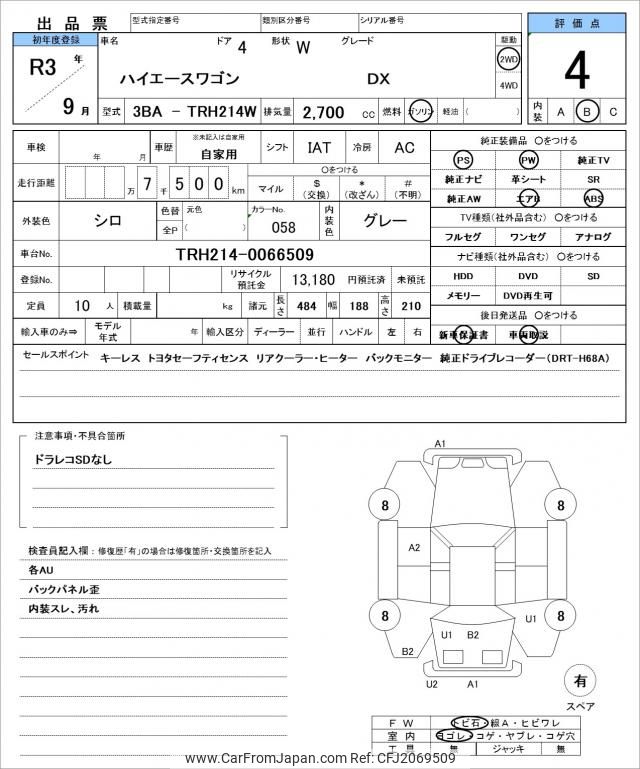 出品票 型式指定番号 類別区分番号 シリアル番号
評価点
初年度登録 車名 ドア 4 形状 W グレード 駆動
R3 年
2WD
4WD
4
ハイエースワゴン DX
9 月
型式 3BA - TRH214W 排気量 2,700 cc 燃料 ガソリン 軽油 ( )
内装 A B C
車検 年 月 車歴 ※未記入は自家用 自家用 シフト IAT 冷房 AC
純正装備品 〇をつける
PS PW 純正TV
走行距離 万 7 千 5 0 0 km
〇をつける
マイル $(交換) *(改ざん) #(不明)
純正ナビ 革シート SR
純正AW エアB ABS
外装色 シロ 色替 元色 全P ( ) カラーNo. 058 内装色 グレー
TV種類(社外品含む) 〇をつける
フルセグ ワンセグ アナログ
車台No. TRH214-0066509
ナビ種類(社外品含む) 〇をつける
登録No. リサイクル預託金 13,180 円預託済 未預託
HDD DVD SD
定員 10 人 積載量 kg 諸元 長さ 484 幅 188 高さ 210
メモリー DVD再生可
後日発送品 〇をつける
輸入車のみ⇒ モデル年式 年 輸入区分 ディーラー 並行 ハンドル 左 右
新車保証書 車両取説
セールスポイント キーレス トヨタセーフティセンス リアクーラー・ヒーター バックモニター 純正ドライブレコーダー(DRT-H68A)
注意事項・不具合箇所
ドラレコSDなし
検査員記入欄：修復歴「有」の場合は修復箇所・交換箇所を記入
各AU
バックパネル歪
内装スレ、汚れ
A1
8 8
A2
8 8
U1
U1 B2
B2
U2 A1
有
スペア
FW トビ石・線A・ヒビワレ
室内 ヨゴレ・コゲ・ヤブレ・コゲ穴
工具 無 ジャッキ 無
www.CarFromJapan.com Ref: CFJ2069509